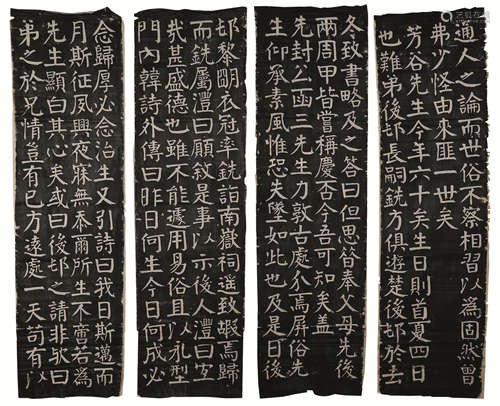 通人之論而世俗不察相習以為固然曾
弗少怪由來匪一世矣
芳谷先生今年六十矣生日則首夏四日
也難弟後邨長嗣銑方俱遊楚後邨於去
冬致書略及之答曰但思答奉父母先後
兩周甲皆嘗稱慶否今吾可知矣蓋
先封公函三先生力敦古處介焉屏俗先
生仰承素風惟恐失墜如此也及是日後
邨黎明衣冠率銑詣南嶽祠遥致嘏焉歸
而銑屬澧曰願敘是事以示後人澧曰宐
哉甚盛德也雖不能遽用易俗且以永型
門內韓詩外傳曰昨日何生今日何成必
念歸厚必念治生又引詩曰我日斯邁而
月斯征夙興夜寐無忝爾所生不啻若為
先生顯白其心矣或曰後邨之請非歟曰
弟之於兄情豈有已方遠處一天苟有以